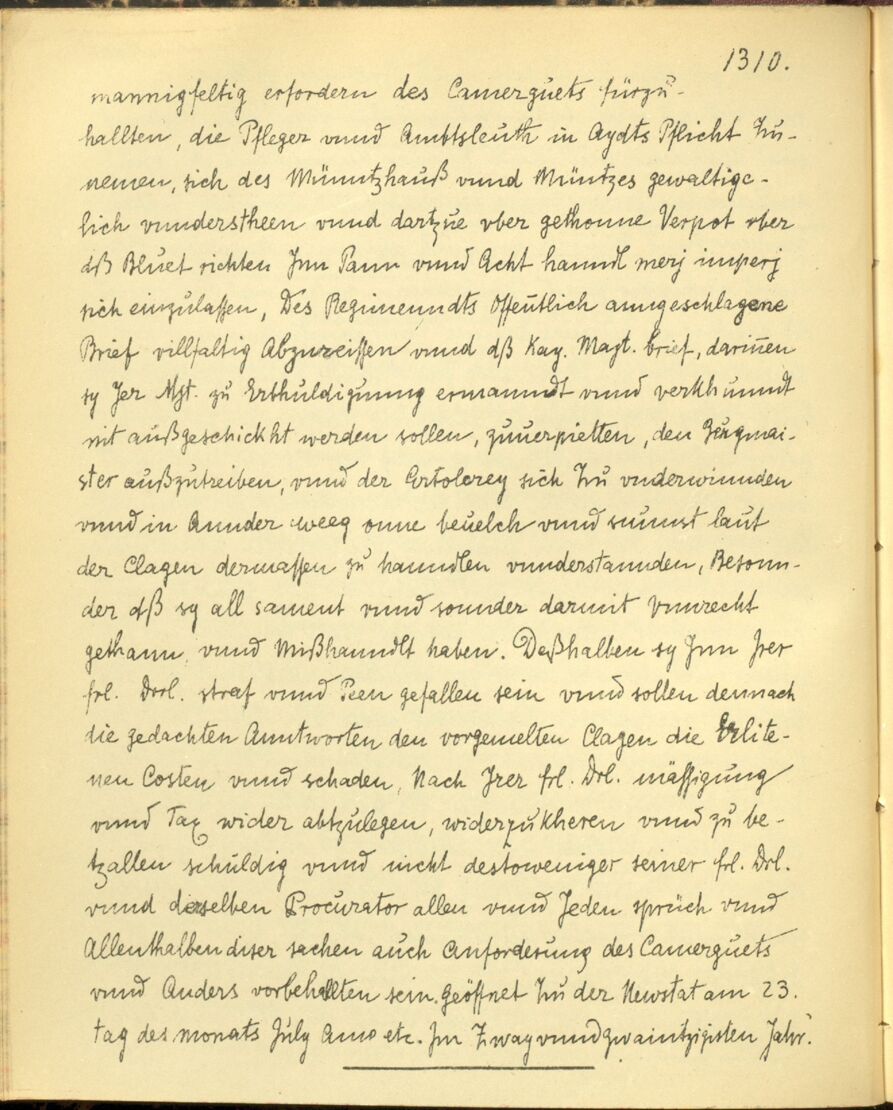 1310.
mannigfeltig erfordern des Camerguets fürzu-
hallten, die Pfleger vnnd Ambtsleuth in Aydts Pflicht Zu-
nemen, sich des Münntzhauß vnnd Müntzes gewaltige-
lich vnnderstheen vnnd dartzue vber gethonne Verpot vber
dß Bluet richten Jnn Pann vnnd Acht hanndl merj imperj
sich einzulassen, Des Regimenndts Offentlich anngeschlagene
Brief villfaltig Abzureissen vnnd dß Kay. Mayt. brief, darinen
sy Jer Mgt. zu Erbhuldigunng ermanndt vnnd verkhunndt
nit außgeschickht werden sollen, zuuerpietten, den Bergmai-
ster außzutreiben, vnnd der Artolerey sich Zu vnderwinnden
vnnd in Annder weeg onne beuelch vnnd sunnst laut
der Clagen dermassen zu hanndlen vnnderstannden, Besonn-
der dß sy all sament vnnd sonnder darmit Vnnrecht
gethann, vnnd Mißhanndlt haben. Deßhalben sy Jnn Jrer
frl. Drl. straf vnnd Peen gefallen sein vnnd sollen dennach
die gedachten Anntworten den vorgemelten Clagen die Erlite-
nen Costen vnnd schaden, Nach Jrer frl. Drl. mässigung
vnnd Tax wider abtzulegen, widerzukheren vnnd zu be-
tzallen schuldig vnnd nicht destoweniger seiner frl. Drl.
vnnd derselben Procurator allen vnnd Jeden sprüch vnnd
Allenthalben diser sachen auch Anforderung des Camerguets
vnnd Anders vorbehallten sein. Geöffnet Zu der Newstat am 23.
tag des monats July Anno etc. Jm Zwayvnndzwaintzigisten Jahr.